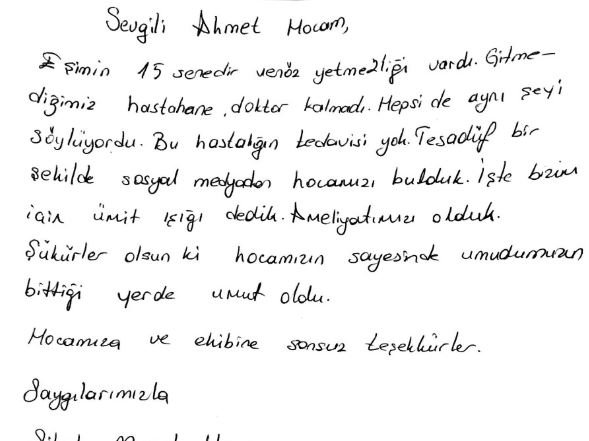 Sevgili Ahmet Hocam,
Eşimin 15 senedir venöz yetmezliği vardı. Gitme-
diğimiz hastahane, doktor kalmadı. Hepsi de aynı şeyi
söylüyordu. Bu hastalığın tedavisi yok. Tesadüf bir
şekilde sosyal medyadan hocamızı bulduk. İşte bizim
için ümit ışığı dedik. Ameliyatımızı olduk.
Şükürler olsun ki hocamızın sayesinde umudumuzun
bittiği yerde umut oldu.
Hocamıza ve ekibine sonsuz teşekkürler.
Saygılarımızla